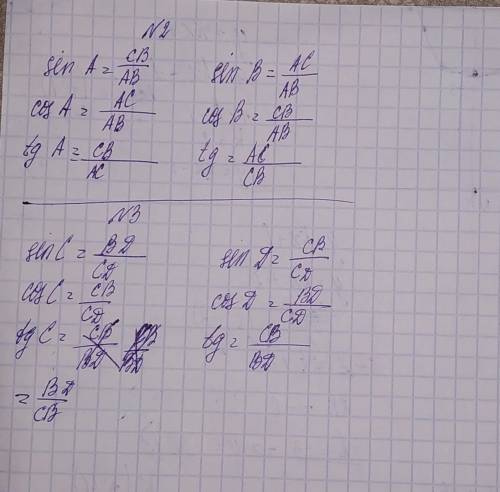 №2
sin A = CB/AB sin B = AC/AB
cos A = AC/AB cos B = CB/AB
tg A = CB/AC tg = AC/CB
№3
sin C = BD/CD sin D = CB/CD
cos C = CB/CD cos D = BD/CD
tg C = CB/BD tg = CB/BD
= BD/CB